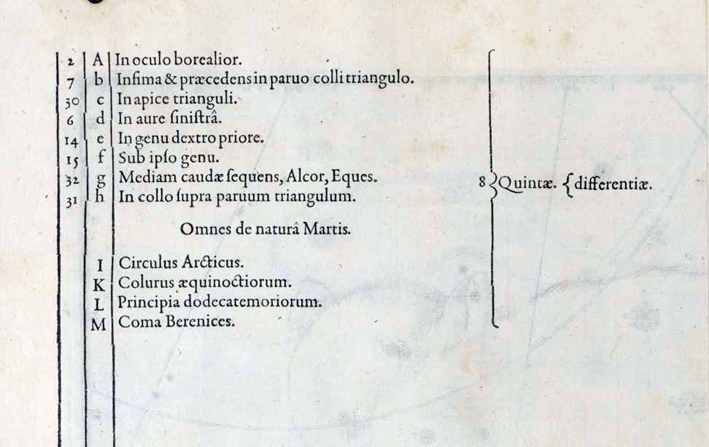 2 A In oculo borealior.
7 b Infima & præcedens in paruo colli triangulo.
30 c In apice trianguli.
6 d In aure ſiniſtrâ.
14 e In genu dextro priore.
15 f Sub ipſo genu.
32 g Mediam caudæ ſequens, Alcor, Eques.
31 h In collo ſupra paruum triangulum.
8 } Quintæ. { differentiæ.
Omnes de naturâ Martis.
I Circulus Arcticus.
K Colurus æquinoctiorum.
L Principia dodecatemoriorum.
M Coma Berenices.